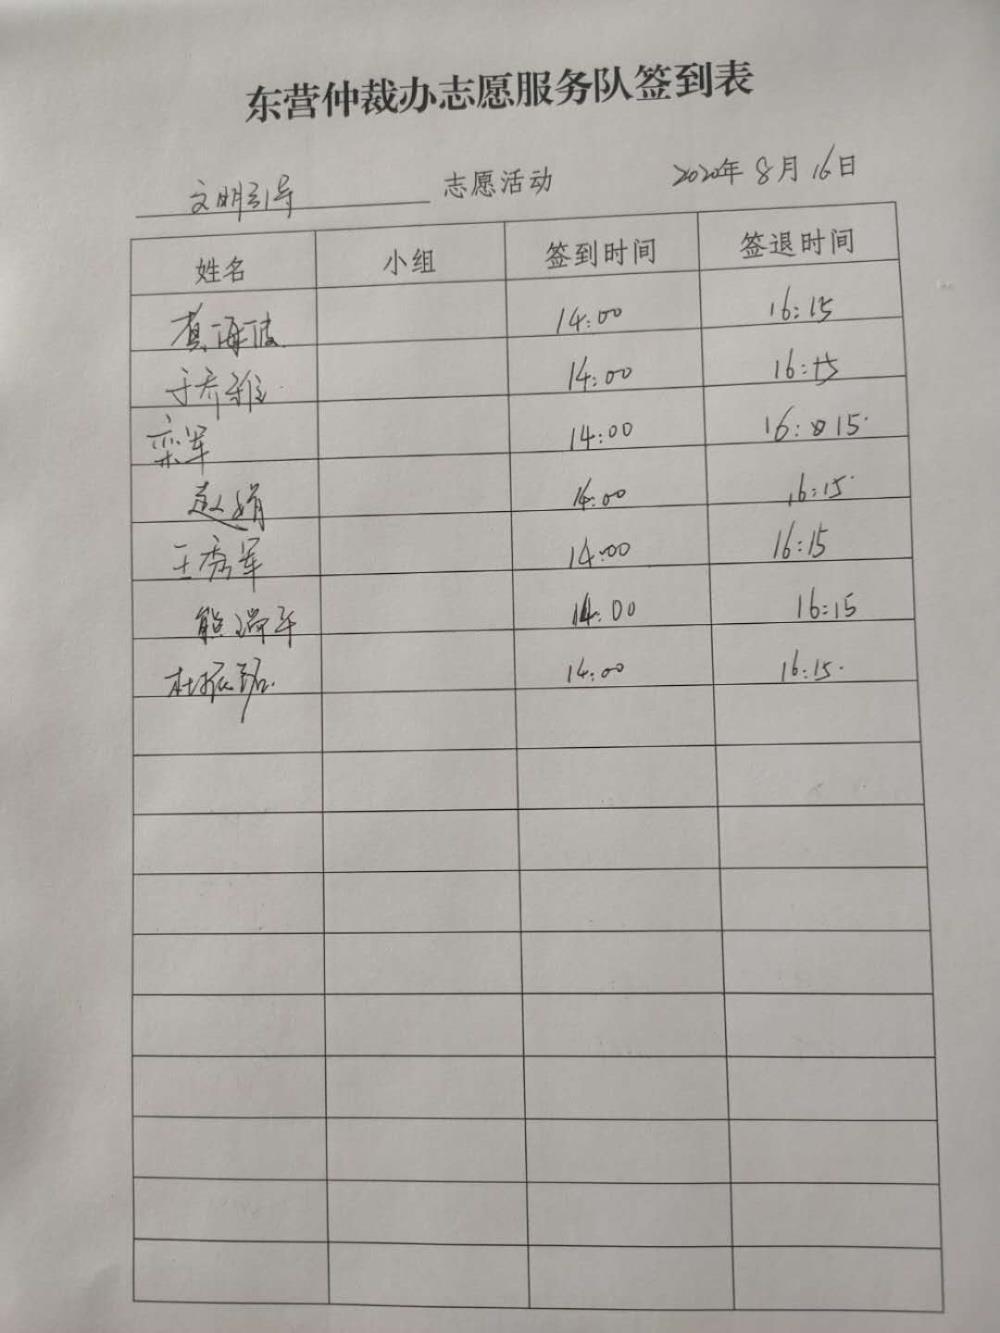 东营仲裁办志愿服务队签到表
文明引导 志愿活动 2020年8月16日
姓名 小组 签到时间 签退时间
黄海波 14:00 16:15
于乔雅 14:00 16:15
栾军 14:00 16:15.
赵娟 14:00 16:15
王秀军 14:00 16:15
熊瑞平 14:00 16:15
杜振 14:00 16:15.